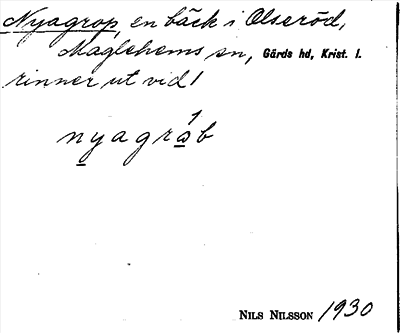 Nyagrop, en bäck i Olseröd,
Maglehems sn, Gärds hd, Krist. l.
rinner ut vid /
1
nyagrab
NILS NILSSON 1930